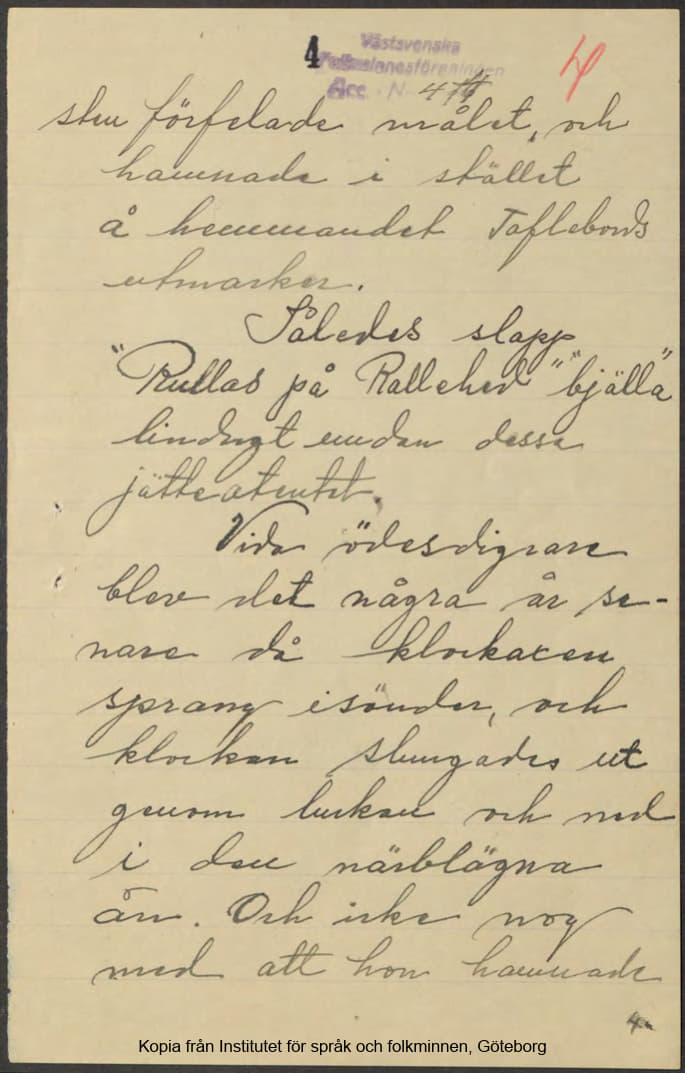 4
Västsvenska
Folkminnesföreningen
Acc. N
4
sten förfelade målet, och
hamnade i stället
å hemmandet Taflebords
utmarker.
Således slapp
"Rullas på Rallehed" "bjälla"
lindrigt undan dessa
jätteatentat.
Vida ödesdigrare
blev det några år se-
nare då klockaxeln
sprang isönder, och
klockan slungades ut
genom luckan och ned
i den närbelägna
ån. Och icke nog
med att hon hamnade
4.
Kopia från Institutet för språk och folkminnen, Göteborg